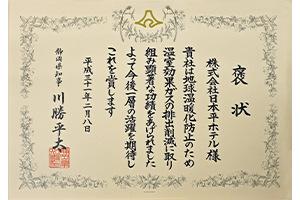 褒状
株式会社日本平ホテル様
貴社は地球温暖化防止のため
温室効果ガスの排出削減に取り
組み顕著な功績をあげられました
よって今後一層の活躍を期待し
これを賞します
平成二十一年二月八日
静岡県知事 川勝平太